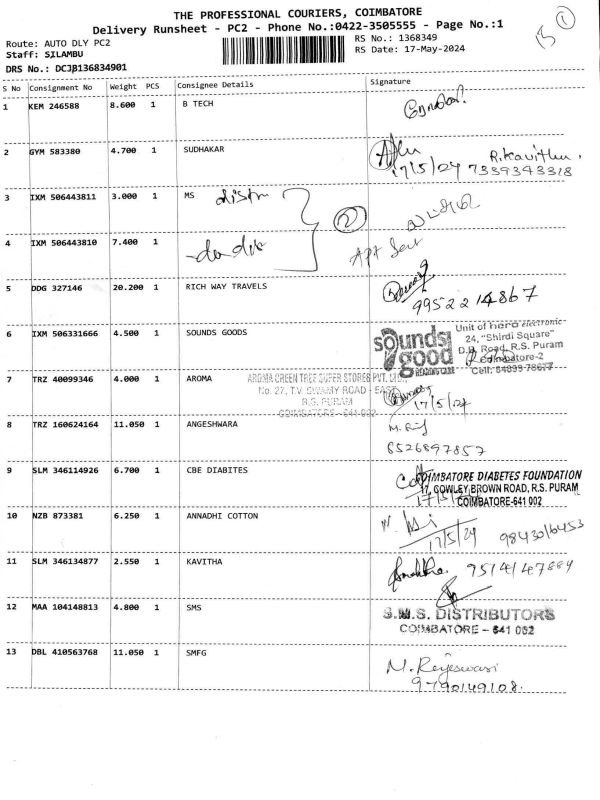 THE PROFESSIONAL COURIERS, COIMBATORE
Delivery Runsheet - PC2 - Phone No.:0422-3505555 - Page No.:1
Route: AUTO DLY PC2
RS No.: 1368349
Staff: SILAMBU
RS Date: 17-May-2024
DRS No.: DCJB136834901
1
S No Consignment No Weight PCS Consignee Details Signature
1 KEM 246588 8.600 1 B TECH
2 GYM 583380 4.700 1 SUDHAKAR
R.Kavitha
17/5/24 7339343318
3 IXM 506443811 3.000 1 MS
2
4 IXM 506443810 7.400 1
5 DDG 327146 20.200 1 RICH WAY TRAVELS
9952214867
6 IXM 506331666 4.500 1 SOUNDS GOODS
sounds good
Unit of hero electronic
24, "Shirdi Square"
D.B. Road, R.S. Puram
Coimbatore-2
7 TRZ 40099346 4.000 1 AROMA
AROMA GREEN TREE SUPER STORES PVT. LTD.,
No. 27, T.V. SWAMY ROAD - EAST
R.S. PURAM
COIMBATORE - 641 002
17/5/24
8 TRZ 160624164 11.050 1 ANGESHWARA
8526897857
9 SLM 346114926 6.700 1 CBE DIABITES
COIMBATORE DIABETES FOUNDATION
17, COWLEY BROWN ROAD, R.S. PURAM
COIMBATORE-641 002
10 NZB 873381 6.250 1 ANNADHI COTTON
17/5/24 9843016453
11 SLM 346134877 2.550 1 KAVITHA
9514147889
12 MAA 104148813 4.800 1 SMS
S.M.S. DISTRIBUTORS
COIMBATORE - 641 002
13 DBL 410563768 11.050 1 SMFG
M. Rejeswari
9790149108.